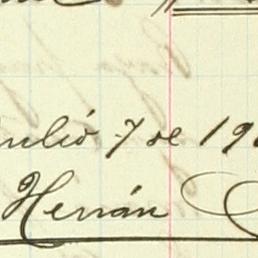 Julió 7 de 190
Herrán